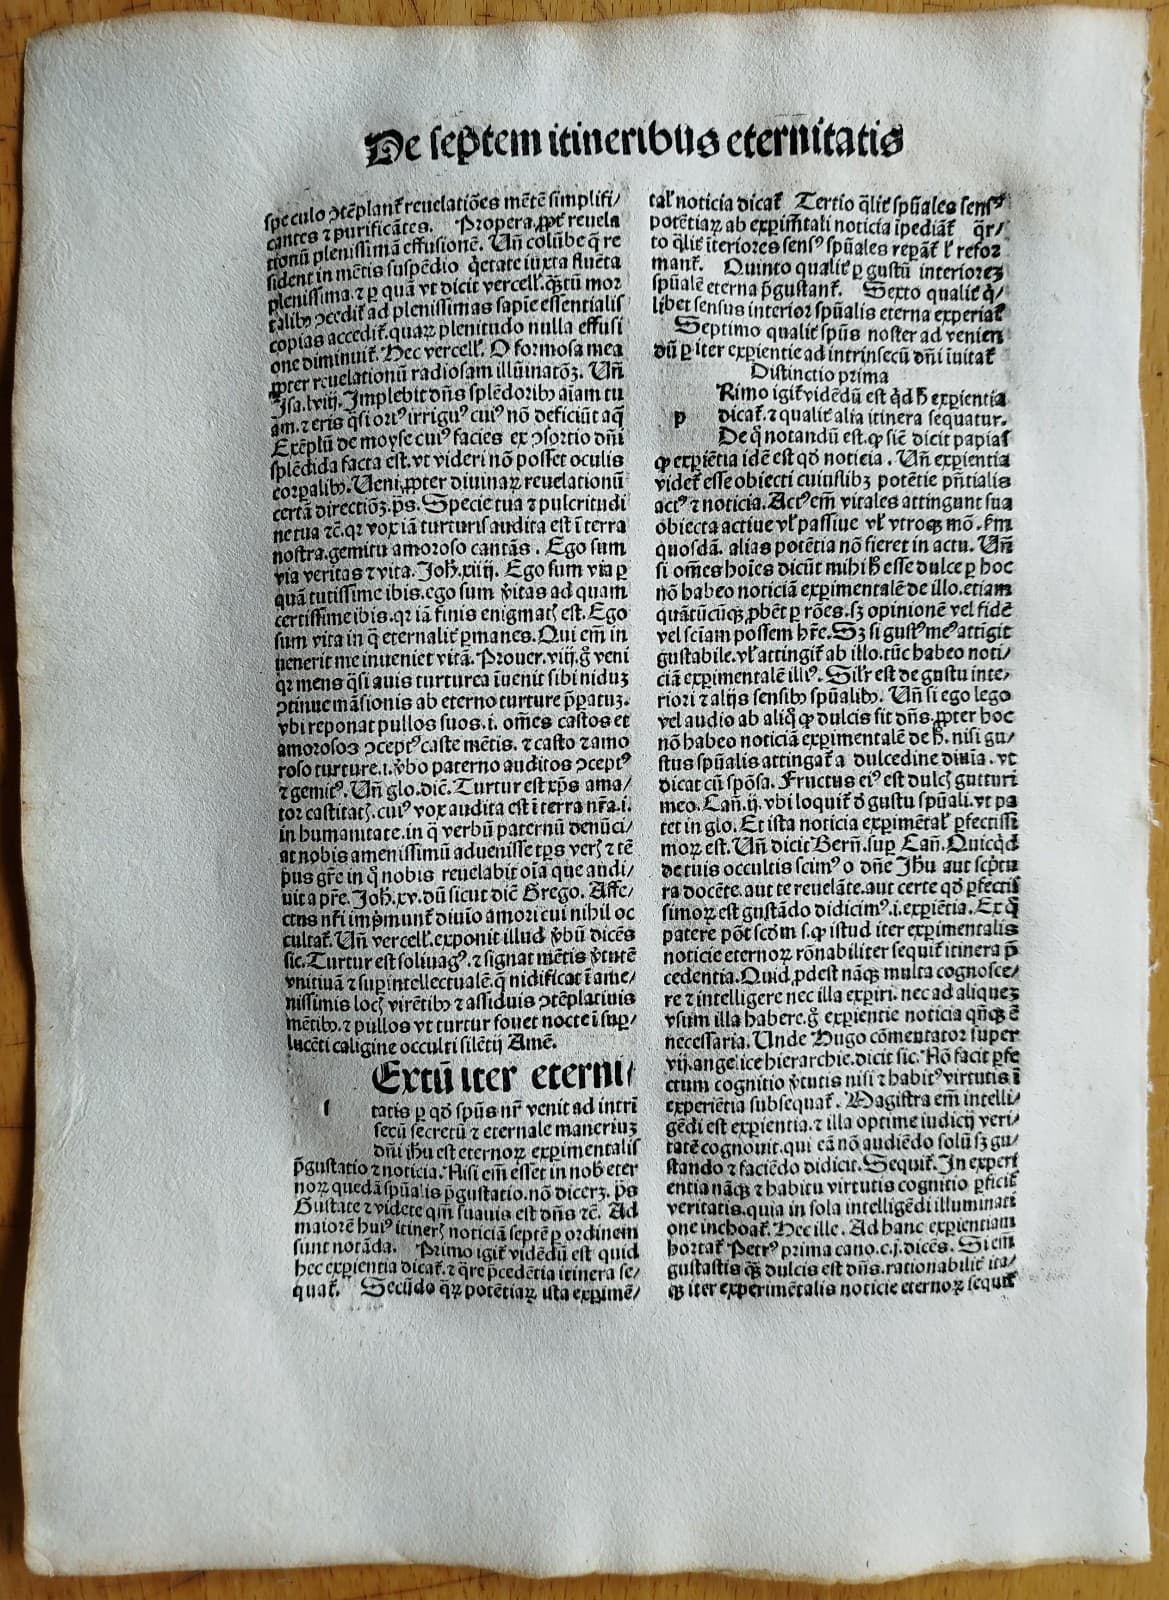 De septem itineribus eternitatis
speculo ↄtēplant᷑ reuelatiōes mētē simplifi/
cantes ⁊ purificātes. Propera, ꝓpt᷑ reuela
tionū plenissimā effusionē. Uñ colūbe q̄ re
sident in mētis suspēdio q̇etate iuxta fluēta
plenissima. ⁊ ꝑ quā vt dicit vercell̕. qꝫtū mor
talibꝰ ↄcedit᷑ ad plenissimas sapīe essentialis
copias accedit᷑. quaꝝ plenitudo nulla effusi
one diminuit᷑. Hec vercell̕. O formosa mea
ꝓpter reuelationū radiosam illūinatōꝫ. Uñ
Isa. lviij. Implebit dñs splēdoribꝰ aīam tu
am. ⁊ eris q̄si ortꝰ irriguꝰ cuiꝰ nō deficiūt aq̄
Exēplū de moyse cuiꝰ facies ex ↄsortio dñi
splēdida facta est. vt videri nō posset oculis
corꝑalibꝰ. Ueni, ꝓpter diuinaꝝ reuelationū
certā directiōꝫ. p̄s. Specie tua ⁊ pulcritudi
ne tua ⁊c̄. qꝛ vox iā turturis audita est ī terra
nostra. gemitu amoroso cantās. Ego sum
via veritas ⁊ vita. Joh̄. xiiij. Ego sum via ꝑ
quā tutissime ibis. ego sum v̄itas ad quam
certissime ibis. qꝛ iā finis enigmatꝭ est. Ego
sum vita in q̄ eternalit᷑ ꝑmanes. Qui em̄ in
uenerit me inueniet vitā. Prouer. viij. g̊ veni
qꝛ mens q̄si auis turturea īuenit sibi niduꝫ
ↄtinue māsionis ab eterno turture p̄ꝑatuꝫ.
vbi reponat pullos suos. i. om̄es castos et
amorosos ↄceptꝰ caste mētis. ⁊ casto ⁊ amo
roso turture. i. v̄bo paterno auditos ↄceptꝰ
⁊ gemitꝰ. Uñ glo. dic̄. Turtur est xp̄s ama/
tor castitatꝭ. cuiꝰ vox audita est ī terra nr̄a. i.
in humanitate. in q̄ verbū paternū denūci/
at nobis amenissimū aduenisse tp̄s verꝭ ⁊ tē
pus gr̄e in q̄ nobis reuelabit oīa que audi/
uit a pr̄e. Joh̄. xv. dū sicut dic̄ Grego. Affe/
ctus nr̄i imp̄munt᷑ diuīo amori cui nihil oc
cultat᷑. Uñ vercell̕. exponit illud v̄bū dicēs
sic. Turtur est soliuagꝰ. ⁊ signat mētis v̄tutē
vnitiuā ⁊ suꝑintellectualē. q̄ nidificat ī ame/
nissimis locꝭ virētibꝰ ⁊ assiduis ↄtēplatiuis
mētibꝰ. ⁊ pullos vt turtur fouet nocte ī suꝑ/
lucēti caligine occulti silētij Amē.
Extū iter eterni/
s
tatis ꝑ qd̄ sp̄us nr̄ venit ad intri
secū secretū ⁊ eternale maneriuꝫ
dñi ih̄u est eternoꝝ exꝑimentalis
p̄gustatio ⁊ noticia. Nisi em̄ esset in nob̄ eter
noꝝ quedā sp̄ualis p̄gustatio. nō dicereꝫ. p̄s
Gustate ⁊ videte qm̄ suauis est dñs ⁊c̄. Ad
maiorē huiꝰ itinerꝭ noticiā septē ꝑ ordinem
sunt notāda. Primo igit᷑ vidēdū est quid
hec exꝑientia dicat᷑. ⁊ q̄re p̄cedētia itinera se/
quat᷑. Secūdo q̄ꝝ potētiaꝝ ista exꝑimē/
tal̕ noticia dicat᷑ Tertio q̄lit᷑ sp̄uales sensꝰ
potētiaꝝ ab exꝑimētali noticia īpediāt᷑ qr̄/
to q̄lit᷑ īteriores sensꝰ sp̄uales reꝑāt᷑ l̕ refor
mant᷑. Quinto qualit᷑ ꝑ gustū interiorez
sp̄ualē eterna p̄gustant᷑. Sexto qualit᷑ q̇/
libet sensus interior sp̄ualis eterna experiat᷑
Septimo qualit᷑ sp̄us noster ad venien
dū ꝑ iter exꝑientie ad intrinsecū dñi īuitat᷑
Distinctio prima
Rimo igit᷑ vidēdū est q̇d h̄ exꝑientia
p
dicat᷑. ⁊ qualit᷑ alia itinera sequatur.
De q̊ notandū est. ꝙ sic̄ dicit papias
ꝙ exꝑiētia idē est qd̄ noticia. Uñ exꝑientia
videt᷑ esse obiecti cuiuslibꝫ potētie p̄ntialis
actꝰ ⁊ noticia. Actꝰ em̄ vitales attingunt sua
obiecta actiue vl̕ passiue vl̕ vtroqꝫ mō. s̄m
quosdā. alias potētia nō fieret in actu. Uñ
si om̄es hoīes dicūt mihi h̄ esse dulce ꝑ hoc
nō habeo noticiā exꝑimentalē de illo. etiam
quātūcūqꝫ ꝓbēt ꝑ rōes. sꝫ opinionē vel fidē
vel sciam possem hr̄e. Sꝫ si gustꝰ meꝰ attīgit
gustabile. vl̕ attingit᷑ ab illo. tūc habeo noti/
ciā exꝑimentalē illiꝰ. Sil̕r est de gustu inte/
riori ⁊ alijs sensibꝰ sp̄ualibꝰ. Uñ si ego lego
vel audio ab aliq̊ ꝙ dulcis sit dñs. ꝓpter hoc
nō habeo noticiā exꝑimentalē de h̄. nisi gu/
stus sp̄ualis attingat᷑ a dulcedine diuīa. vt
dicat cū spōsa. Fructus eiꝰ est dulcꝭ gutturi
meo. Can̄. ij. vbi loquit᷑ d̄ gustu sp̄uali. vt pa
tet in glo. Et ista noticia exꝑimētal̕ ꝑfectissi
moꝝ est. Uñ dicit Bern̄. suꝑ Can̄. Quicq̇d
de tuis occultis scimꝰ o dñe Jh̄u aut scp̄tu
ra docēte. aut te reuelāte. aut certe qd̄ ꝑfectis
simoꝝ est gustādo didicimꝰ. i. exꝑiētia. Ex q̊
patere pōt scd̄m s. ꝙ istud iter exꝑimentalis
noticie eternoꝝ rōnabiliter sequit᷑ itinera p̄
cedentia. Quid ꝓdest nāqꝫ multa cognosce/
re ⁊ intelligere nec illa exꝑiri. nec ad aliqueꝫ
vsum illa habere. g̊ exꝑientie noticia qn̄qꝫ ē
necessaria. Unde Hugo cōmentator super
vij. angelice hierarchie. dicit sic. Nō facit ꝑfe
ctum cognitio v̄tutis nisi ⁊ habitꝰ virtutis ī
experiētia subsequat᷑. Magistra em̄ intelli/
gēdi est exꝑientia. ⁊ illa optime iudicij veri/
tatē cognouit. qui eā nō audiēdo solū sꝫ gu/
stando ⁊ faciēdo didicit. Sequit᷑. In experi
entia nāqꝫ ⁊ habitu virtutis cognitio ꝑficit᷑
veritatis. quia in sola intelligēdi illuminati
one inchoat᷑. Hec ille. Ad hanc exꝑientiam
hortat᷑ Petrꝰ prima cano. c. j. dicēs. Si em̄
gustastis qꝫ dulcis est dñs. rationabilit᷑ ita/
qꝫ iter experimētalis noticie eternoꝝ sequit᷑